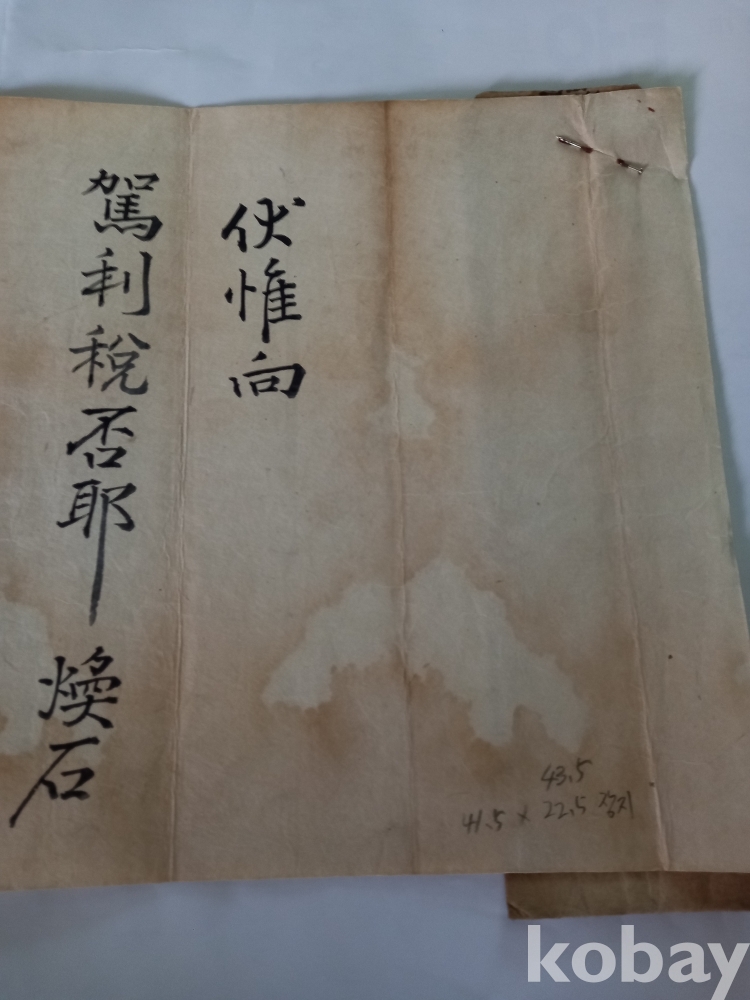 伏惟向
駕利稅否耶 煥石
43.5
41.5 x 22.5 장지
kobay